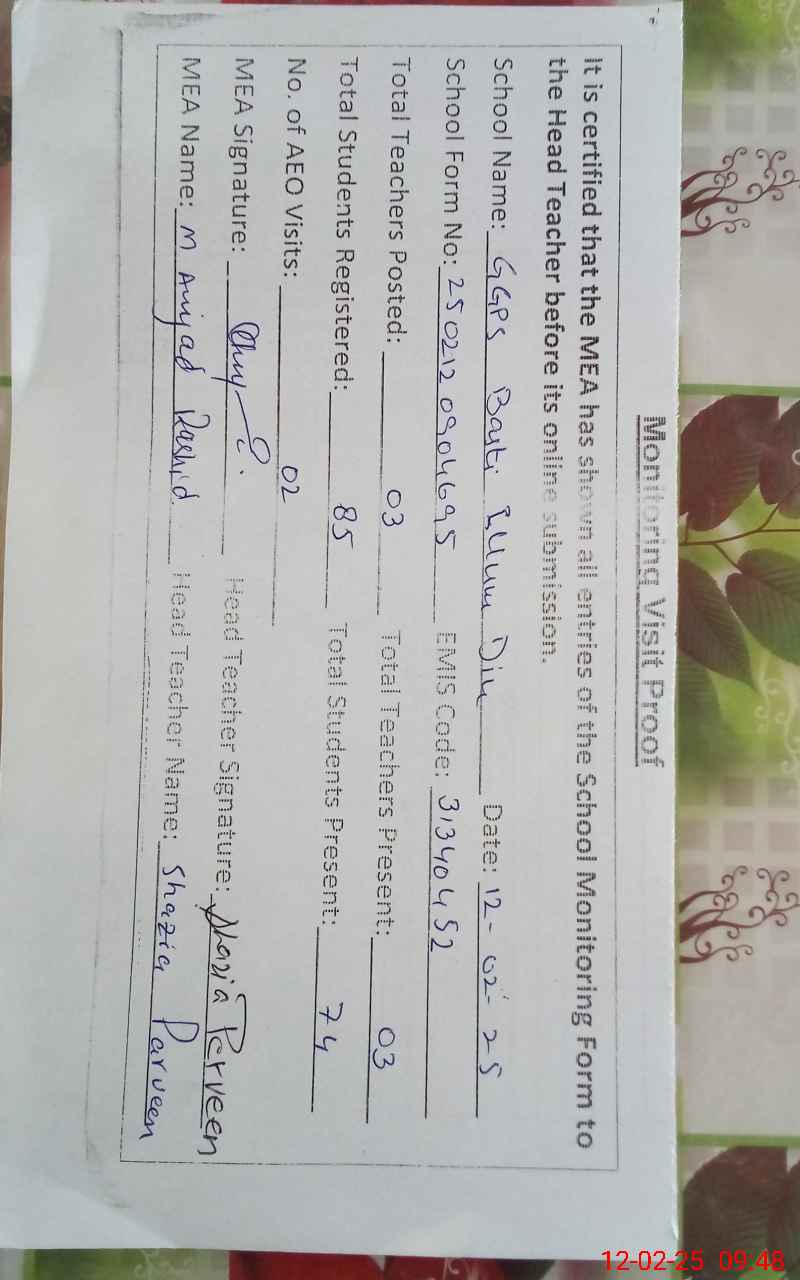 Monitoring Visit Proof
It is certified that the MEA has shown all entries of the School Monitoring Form to
the Head Teacher before its online submission.
School Name: GGPS Basti Illum Din Date: 12-02-25
School Form No: 250212 0904695 EMIS Code: 31340452
Total Teachers Posted: 03 Total Teachers Present: 03
Total Students Registered: 85 Total Students Present: 74
No. of AEO Visits: 02
MEA Signature: Head Teacher Signature: Shazia Perveen
MEA Name: M Amjad Rashid Head Teacher Name: Shazia Parveen
12-02-25 09:48